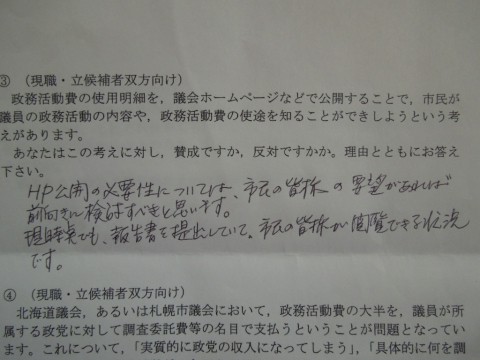 ③ (現職・立候補者双方向け)
政務活動費の使用明細を，議会ホームページなどで公開することで，市民が
議員の政務活動の内容や，政務活動費の使途を知ることができしようという考
えがあります。
あなたはこの考えに対し，賛成ですか，反対ですか。理由とともにお答え
下さい。
HP公開の必要性については、市民の皆様の要望があれば
前向きに検討すべきと思います。
現時点でも、報告書を提出していて、市民の皆様が閲覧できる状況
です。
④ (現職・立候補者双方向け)
北海道議会，あるいは札幌市議会において，政務活動費の大半を，議員が所
属する政党に対して調査委託費等の名目で支払うということが問題となってい
ます。これについて，「実質的に政党の収入になってしまう」，「具体的に何を調